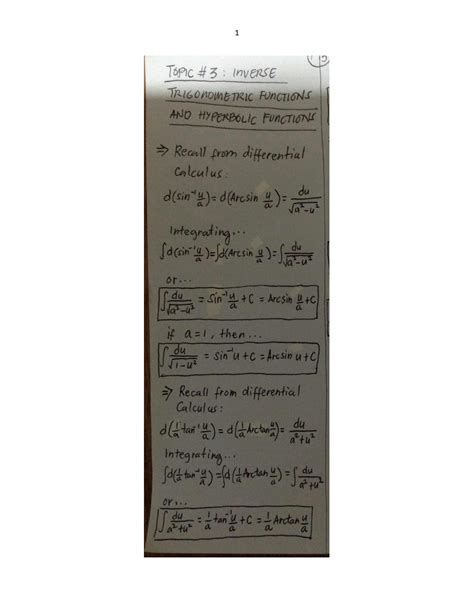 1
TOPIC #3: INVERSE
TRIGONOMETRIC FUNCTIONS
AND HYPERBOLIC FUNCTIONS
⇒ Recall from differential
Calculus:
d(sin⁻¹ u/a) = d(Arcsin u/a) = du/√(a²-u²)
Integrating...
∫d(sin⁻¹ u/a) = ∫d(Arcsin u/a) = ∫du/√(a²-u²)
or...
∫du/√(a²-u²) = Sin⁻¹ u/a + C = Arcsin u/a + C
if a=1, then...
∫du/√(1-u²) = sin⁻¹u + C = Arcsin u + C
⇒ Recall from differential
Calculus:
d(1/a tan⁻¹ u/a) = d(1/a Arctan u/a) = du/(a²+u²)
Integrating...
∫d(1/a tan⁻¹ u/a) = ∫d(1/a Arctan u/a) = ∫du/(a²+u²)
or...
∫du/(a²+u²) = 1/a tan⁻¹ u/a + C = 1/a Arctan u/a